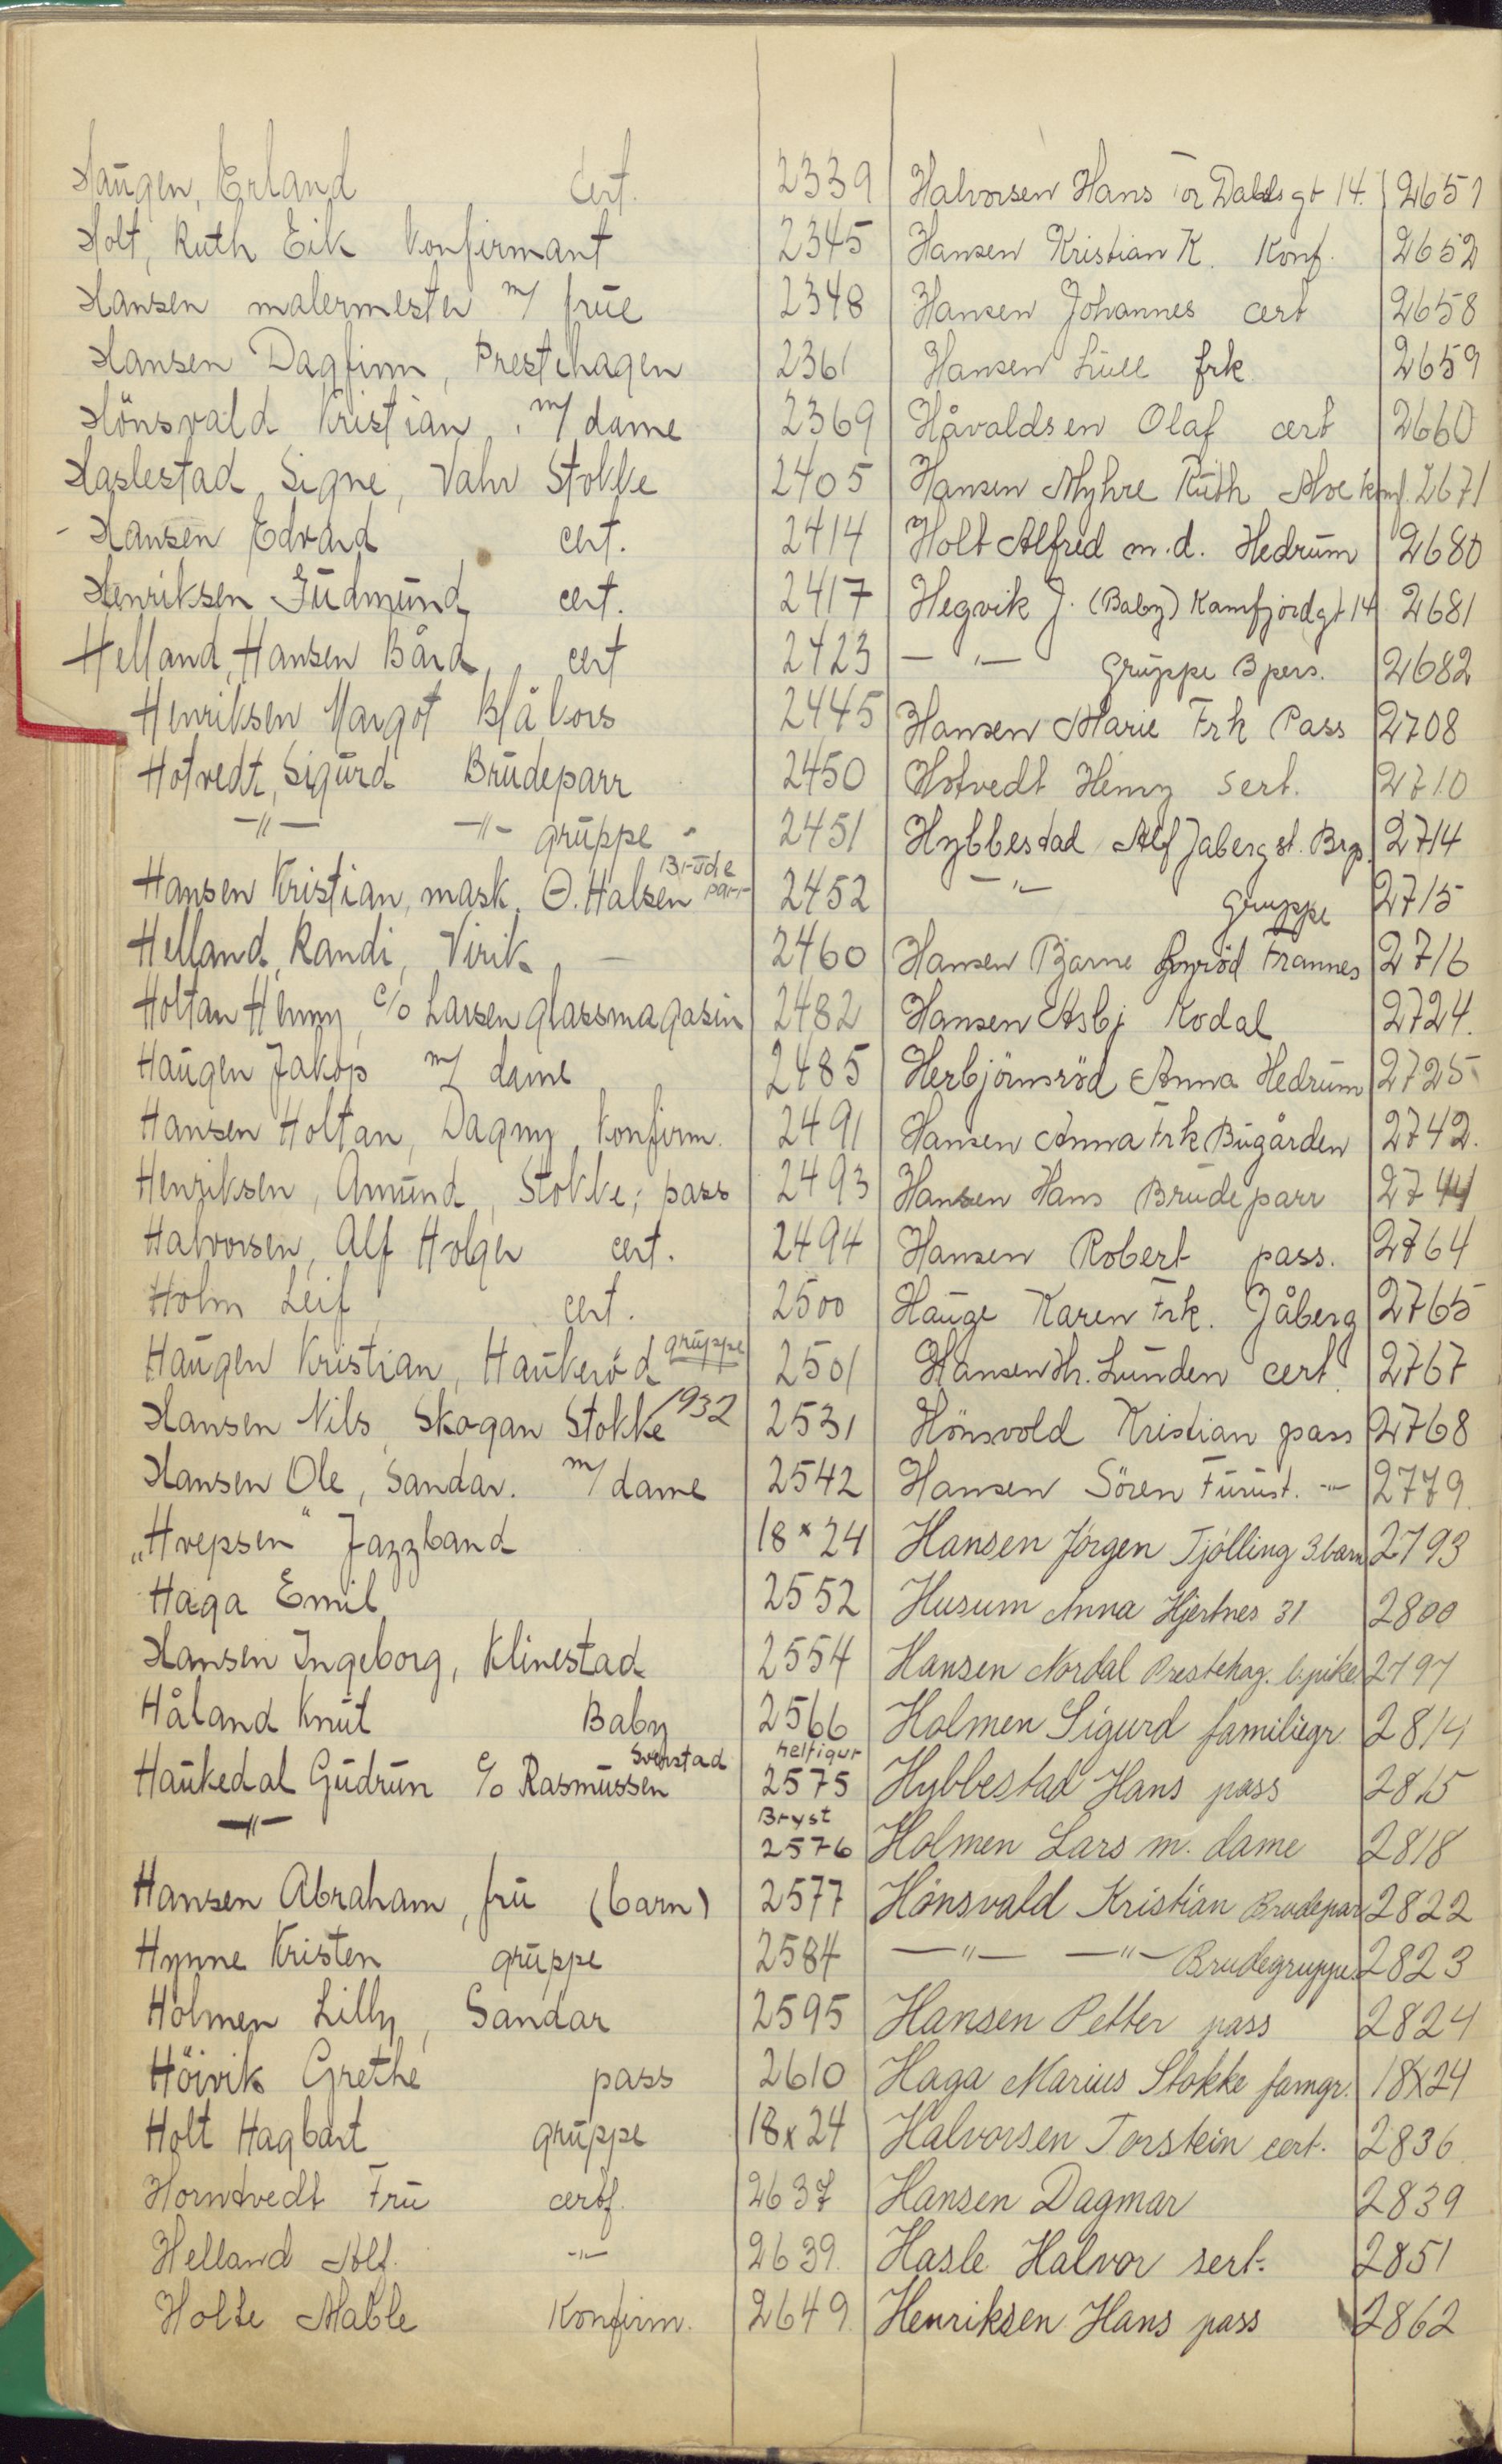 Haugen, Erland cert. 2339
Holt, Ruth Eik Konfirmant 2345
Hansen malermester m/ frue 2348
Hansen Dagfinn, Prestehagen 2361
Hönsvald Kristian, m/ dame 2369
Haslestad, Signe, Valur Stokke 2405
- Hansen Edvard cert. 2414
Henriksen Gudmund cert. 2417
Helland, Hansen Bård, cert 2423
Henriksen Margot Blåkors 2445
Hotvedt, Sigurd Brudeparr 2450
—"— —"— gruppe - 2451
Hansen Kristian, mask. Ø. Halsen Brude parr 2452
Helland, Randi, Virik 2460
Holtan Henny, c/o Larsen glassmagasin 2482
Haugen Jakop m/ dame 2485
Hansen Holtan, Dagny, Konfirm. 2491
Henriksen, Amund, Stokke; pass 2493
Halvorsen, Alf Holger cert. 2494
Holm Leif cert. 2500
Haugen Kristian, Haukeröd gruppe 2501
Hansen Nils, Skogan Stokke 1932 2531
Hansen Ole, Sandar. m/ dame 2542
„Hvepsen" Jazzband 18 x 24
Haga Emil 2552
Hansen Ingeborg, Klinestad 2554
Håland Knut Baby 2566
Haukedal Gudrun c/o Rasmussen Svenstad helfigur 2575
—"— Bryst 2576
Hansen Abraham, fru (barn) 2577
Hynne Kristen gruppe 2584
Holmen Lilly, Sandar 2595
Höivik Grethe pass 2610
Holt Hagbart gruppe 18 x 24
Horntvedt Fru certf. 2637
Helland Alf. —"— 2639
Holte Mable Konfirm. 2649
Halvorsen Hans Tor Dahls gt 14. 2651
Hansen Kristian K. Konf. 2652
Hansen Johannes cert 2658
Hansen Lull frk 2659
Håvaldsen Olaf cert 2660
Hansen Myhre Ruth Moe konf. 2671
Holt Alfred m.d. Hedrum 2680
Hegvik J. (Baby) Kamfjordgt 14 2681
— "— gruppe 3 pers. 2682
Hansen Marie Frk Pass 2708
Hotvedt Henry sert. 2710
Hybbestad Alf Jaberg st. Brp. 2714
— "— gruppe 2715
Hansen Bjarne Framnes 2716
Hansen Asbj Kodal 2724.
Herbjörnsröd Anna Hedrum 2725
Hansen Anna Frk Bugården 2742.
Hansen Hans Brudeparr 2744
Hansen Robert pass. 2764
Hauge Karen Frk. Jåberg 2765
Hansen Hr. Lunden cert. 2767
Hönsvold Kristian pass 2768
Hansen Sören Furust. —"— 2779.
Hansen Jörgen Tjölling 3 barn 2793
Husum Anna Hjertnes 31 2800
Hansen Nordal Prestehag. l. pike 2797
Holmen Sigurd familiegr. 2814
Hybbestad Hans pass 2815
Holmen Lars m. dame 2818
Hönsvald Kristian Brudepar 2822
—"— —"— Brudegruppe 2823
Hansen Petter pass 2824
Haga Marius Stokke famgr. 18x24
Halvorsen Torstein cert. 2836
Hansen Dagmar 2839
Hasle Halvor sert. 2851
Henriksen Hans pass 2862